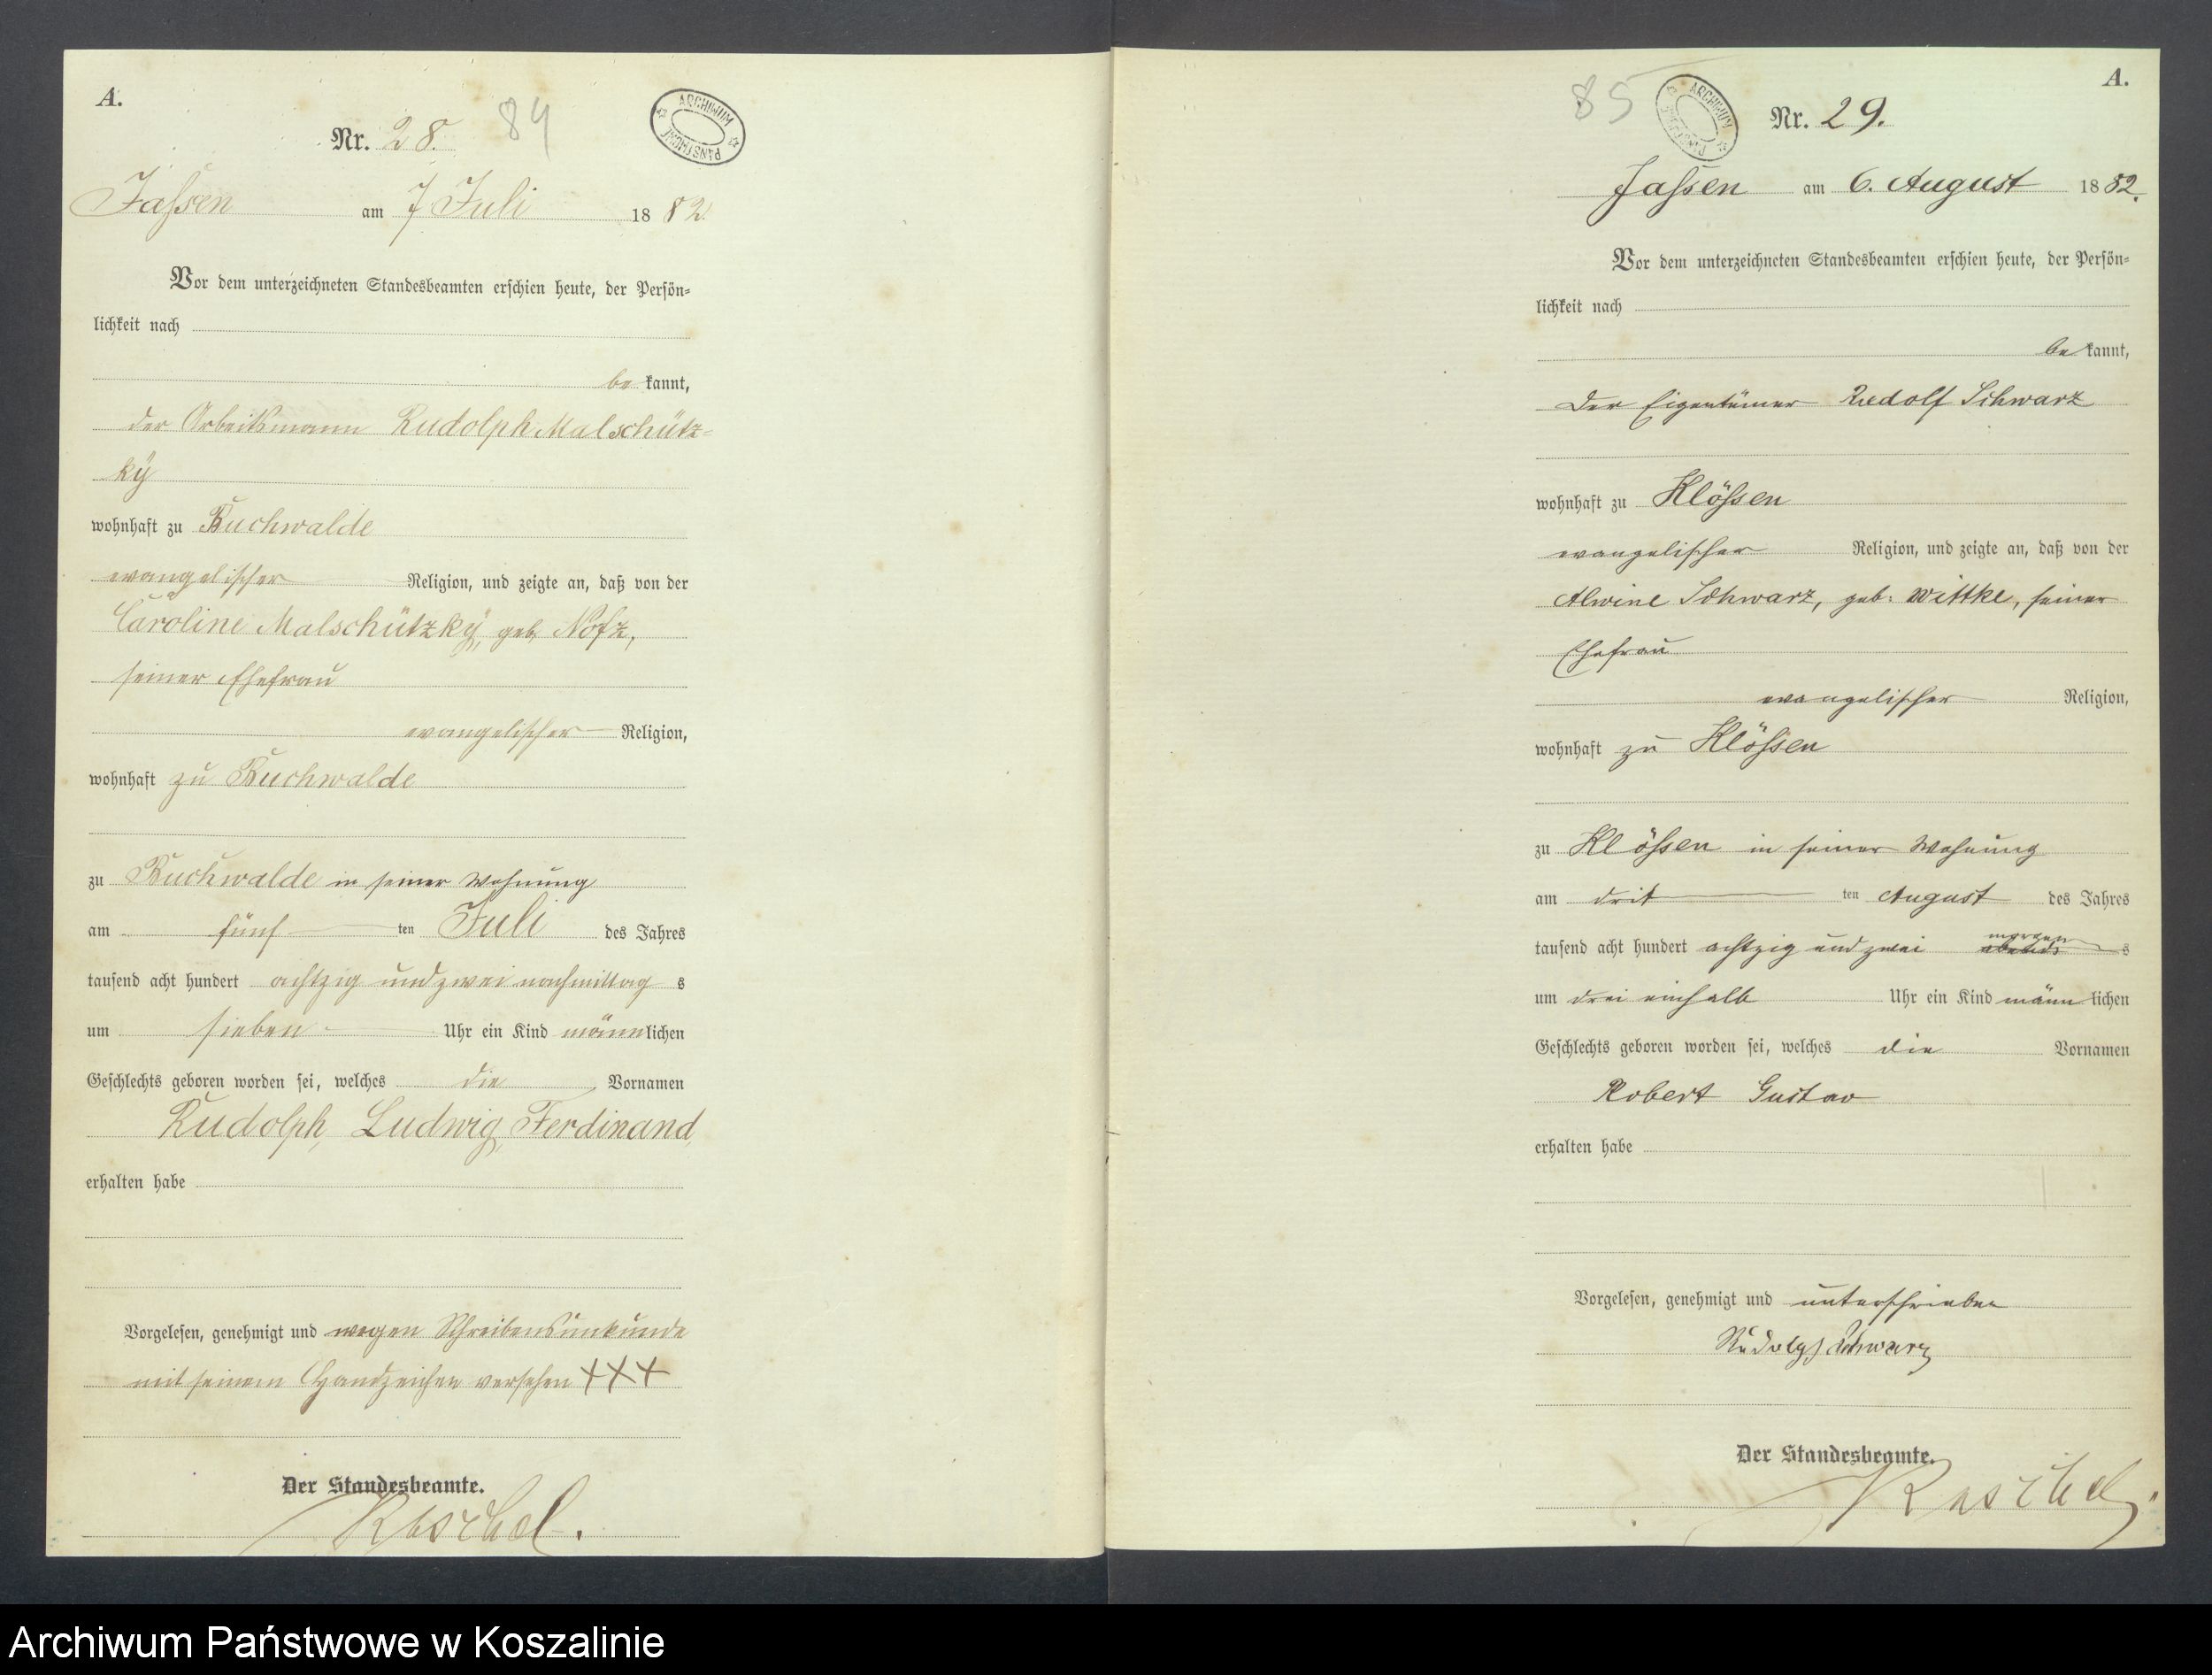 A.
Nr. 28. 84
ARCHIWUM PAŃSTWOWE
Jassen am 7 Juli 1882
Vor dem unterzeichneten Standesbeamten erschien heute, der Persön-
lichkeit nach
be kannt,
der Arbeitsmann Rudolph Malschütz-
ky
wohnhaft zu Buchwalde
evangelischer Religion, und zeigte an, daß von der
Caroline Malschützky, geb. Nofz,
seiner Ehefrau
evangelischer Religion,
wohnhaft zu Buchwalde
zu Buchwalde in seiner Wohnung
am fünf ten Juli des Jahres
tausend acht hundert achtzig und zwei nachmittag s
um sieben Uhr ein Kind männlichen
Geschlechts geboren worden sei, welches die Vornamen
Rudolph, Ludwig, Ferdinand,
erhalten habe
Vorgelesen, genehmigt und wegen Schreibensunkunde
mit seinem Handzeichen versehen +++
Der Standesbeamte.
A.
85 Nr. 29.
ARCHIWUM PAŃSTWOWE
Jassen am 6. August 1882.
Vor dem unterzeichneten Standesbeamten erschien heute, der Persön-
lichkeit nach
be kannt,
Der Eigentümer Rudolf Schwarz
wohnhaft zu Klössen
evangelischer Religion, und zeigte an, daß von der
Alwine Schwarz, geb. Wittke, seiner
Ehefrau
evangelischer Religion,
wohnhaft zu Klössen
zu Klössen in seiner Wohnung
am drit ten August des Jahres
morgen
tausend acht hundert achtzig und zwei abends s
um drei einhalb Uhr ein Kind männlichen
Geschlechts geboren worden sei, welches die Vornamen
Robert Gustav
erhalten habe
Vorgelesen, genehmigt und unterschrieben
Rudolph Schwarz
Der Standesbeamte.
Archiwum Państwowe w Koszalinie